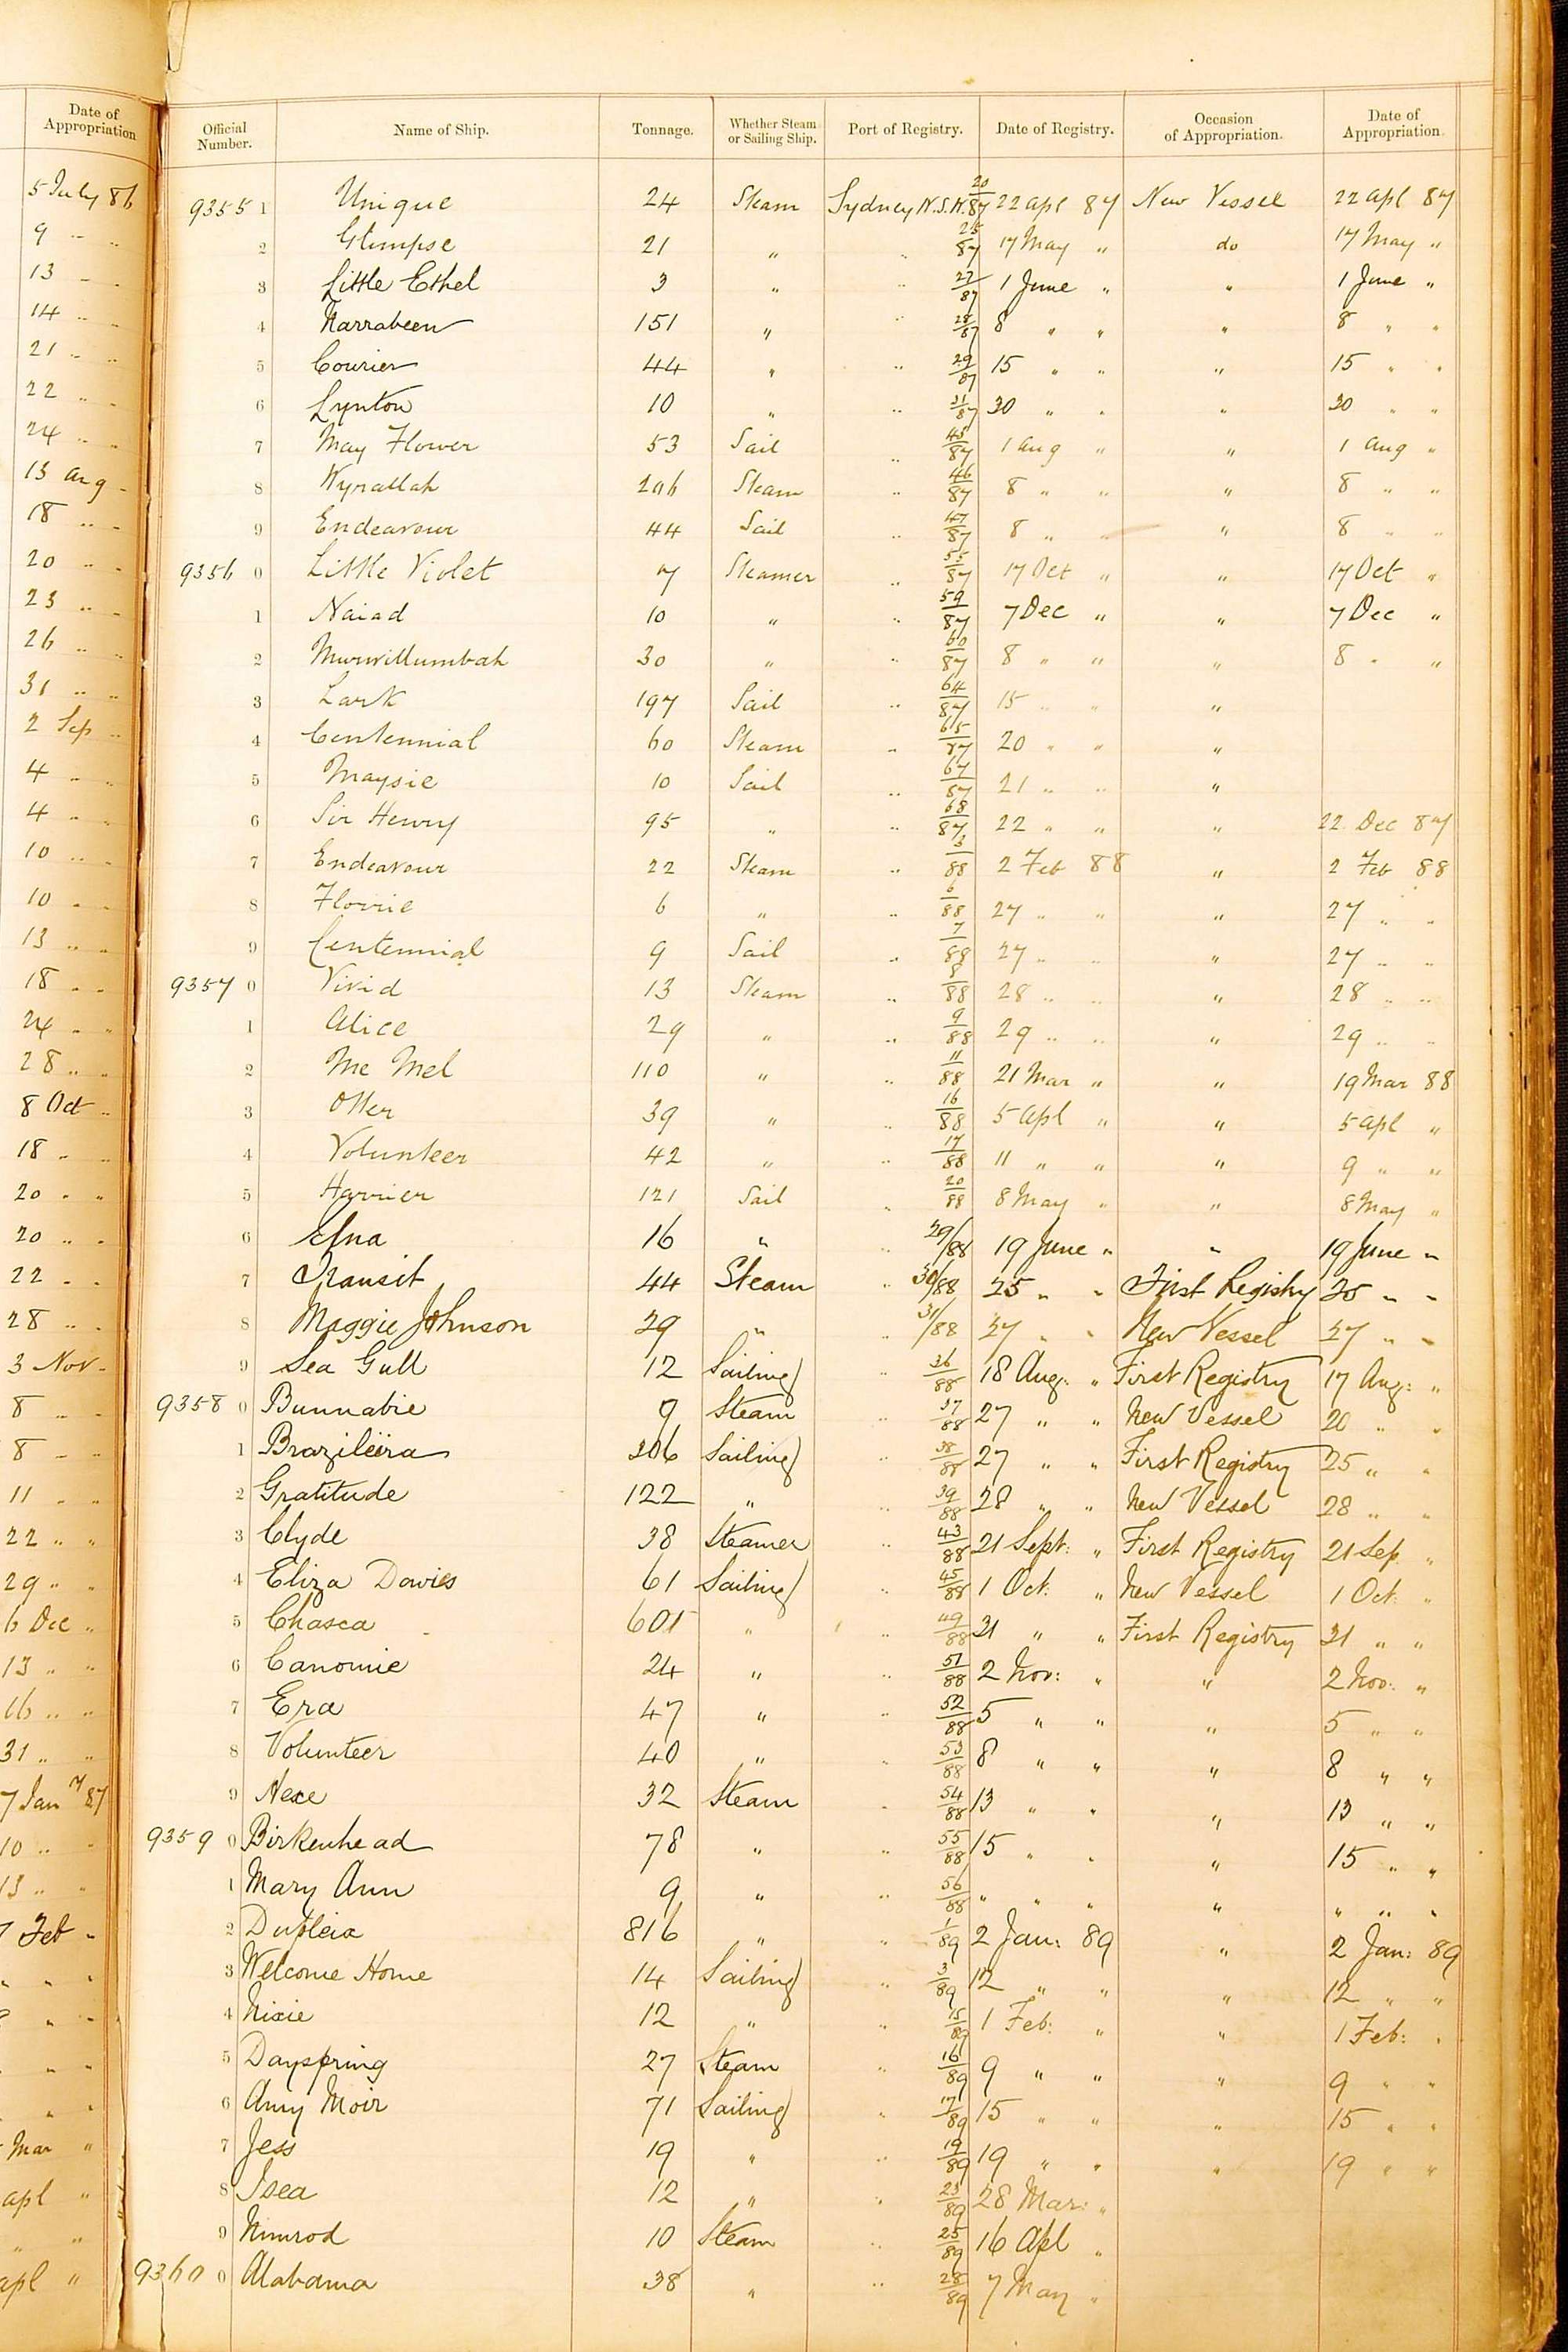 Date of Appropriation
5 July 86
9 " "
13 " "
14 " "
21 " "
22 " "
24 " "
13 Aug "
18 " "
20 " "
23 " "
26 " "
31 " "
2 Sep "
4 " "
4 " "
10 " "
10 " "
13 " "
18 " "
24 " "
28 " "
8 Oct "
18 " "
20 " "
20 " "
22 " "
28 " "
3 Nov "
8 " "
8 " "
11 " "
22 " "
29 " "
6 Dec "
13 " "
16 " "
31 " "
7 Jan 87
10 " "
13 " "
7 Feb "
Mar "
apl "
" "
apl "
Official Number. Name of Ship. Tonnage. Whether Steam or Sailing Ship. Port of Registry. Date of Registry. Occasion of Appropriation. Date of Appropriation.
9355 1 Unique 24 Steam Sydney N.S.W. 20/87 22 apl 87 New Vessel 22 apl 87
2 Glimpse 21 " " 25/87 17 May " do 17 May "
3 Little Ethel 3 " " 27/87 1 June " " 1 June "
4 Narrabeen 151 " " 28/87 8 " " " 8 " "
5 Courier 44 " " 29/87 15 " " " 15 " "
6 Lynton 10 " " 31/87 30 " " " 30 " "
7 May Flower 53 Sail " 45/87 1 aug " " 1 aug "
8 Wyrallah 206 Steam " 46/87 8 " " " 8 " "
9 Endeavour 44 Sail " 47/87 8 " " " 8 " "
9356 0 Little Violet 7 Steamer " 55/87 17 Oct " " 17 Oct "
1 Naiad 10 " " 59/87 7 Dec " " 7 Dec "
2 Murwillumbah 30 " " 60/87 8 " " " 8 " "
3 Lark 197 Sail " 64/87 15 " " "
4 Centennial 60 Steam " 65/87 20 " " "
5 Maysie 10 Sail " 67/87 21 " " "
6 Sir Henry 95 " " 68/87 22 " " " 22 Dec 87
7 Endeavour 22 Steam " 3/88 2 Feb 88 " 2 Feb 88
8 Florrie 6 " " 6/88 27 " " " 27 " "
9 Centennial 9 Sail " 7/88 27 " " " 27 " "
9357 0 Vivid 13 Steam " 8/88 28 " " " 28 " "
1 Alice 29 " " 9/88 29 " " " 29 " "
2 Me Mel 110 " " 11/88 21 Mar " " 19 Mar 88
3 Otter 39 " " 16/88 5 apl " " 5 apl "
4 Volunteer 42 " " 17/88 11 " " " 9 " "
5 Harrier 121 Sail " 20/88 8 May " " 8 May "
6 Edna 16 " " 29/88 19 June " " 19 June "
7 Transit 44 Steam " 30/88 25 " " First Registry 25 " "
8 Maggie Johnson 29 " " 31/88 27 " " New Vessel 27 " "
9 Sea Gull 12 Sailing " 36/88 18 Aug: " First Registry 17 Aug: "
9358 0 Bunnabie 9 Steam " 37/88 27 " " New Vessel 20 " "
1 Brazileira 206 Sailing " 38/88 27 " " First Registry 25 " "
2 Gratitude 122 " " 39/88 28 " " New Vessel 28 " "
3 Clyde 38 Steamer " 43/88 21 Sept: " First Registry 21 Sep "
4 Eliza Davies 61 Sailing " 45/88 1 Oct: " New Vessel 1 Oct: "
5 Chasca 601 " " 49/88 31 " " First Registry 31 " "
6 Canomie 24 " " 51/88 2 Nov: " " 2 Nov: "
7 Era 47 " " 52/88 5 " " " 5 " "
8 Volunteer 40 " " 53/88 8 " " " 8 " "
9 32 Steam " 54/88 13 " " " 13 " "
9359 0 Birkenhead 78 " " 55/88 15 " " " 15 " "
1 Mary Ann 9 " " 56/88 " " " " " " "
2 Dupleix 816 " " 1/89 2 Jan: 89 " 2 Jan: 89
3 Welcome Home 14 Sailing " 3/89 12 " " " 12 " "
4 Nixie 12 " " 15/89 1 Feb: " " 1 Feb: "
5 Dayspring 27 Steam " 16/89 9 " " " 9 " "
6 Amy Moir 71 Sailing " 17/89 15 " " " 15 " "
7 Jess 19 " " 19/89 19 " " " 19 " "
8 Isea 12 " " 23/89 28 Mar: "
9 Nimrod 10 Steam " 25/89 16 Apl "
9360 0 Alabama 38 " " 28/89 7 May "